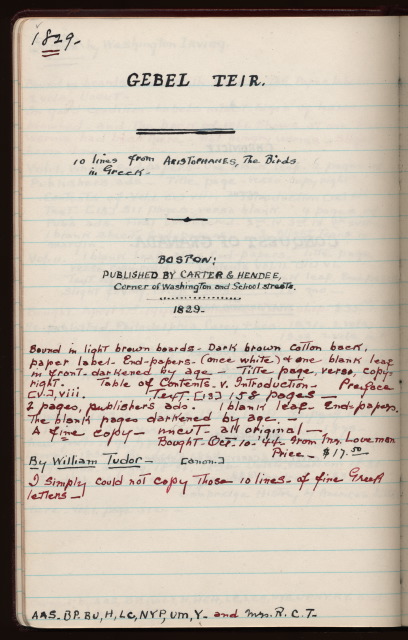 1829-
GEBEL TEIR.
10 lines from ARISTOPHANES, The Birds
in Greek-
BOSTON:
PUBLISHED BY CARTER & HENDEE,
Corner of Washington and School streets.
1829-
Bound in light brown boards- Dark brown cotton back,
paper label- End-papers- (once white) & one blank leaf
in front-darkened by age- Title page, verso, copy-
right. Table of Contents. v. Introduction- Preface
[v-], viii. Text. [13] 158 pages-
2 pages, publishers ads. 1 blank leaf- End-papers.
The blank pages darkened by age-
A fine copy- uncut- all original-
Bought Oct. 10. '44- from Mrs. Loveman
Price- $17.50
By William Tudor- [anon.]
I simply could not copy those 10 lines- of fine Greek
letters-
AAS- BP. BU, H, LC, NYP, UM, Y- and Mrs. R. C. T-